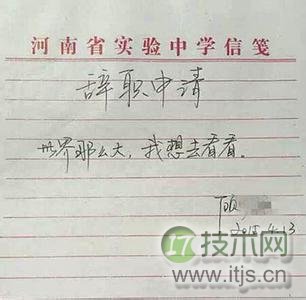 河南省实验中学信笺
辞职申请
世界那么大，我想去看看。
顾
2015.4.13
17技术网
www.itjs.cn